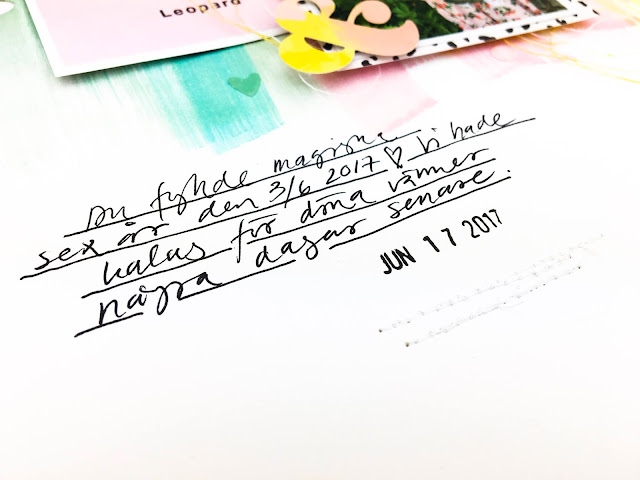 Leopard
Du fyllde magiska
sex år den 3/6 2017 ♡ Vi hade
kalas för dina vänner
några dagar senare.
JUN 17 2017